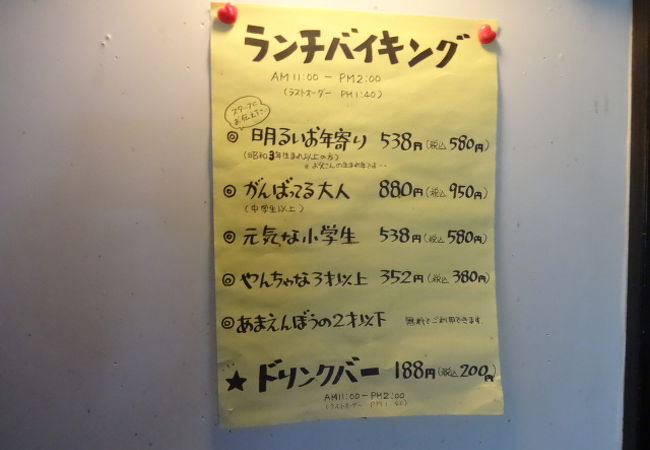 ランチバイキング
AM 11:00 － PM 2:00
(ラストオーダー PM 1:40)
スタッフに
お伝え下さい
◎ 明るいお年寄り 538円 (税込 580円)
(昭和3年生まれ以上の方)
※ お父さんの生まれ年です…
◎ がんばってる大人 880円 (税込 950円)
(中学生以上)
◎ 元気な小学生 538円 (税込 580円)
◎ やんちゃな3才以上 352円 (税込 380円)
◎ あまえんぼうの2才以下 無料でご利用できます
★ ドリンクバー 188円 (税込 200円)
AM 11:00 － PM 2:00
(ラストオーダー PM 1:40)